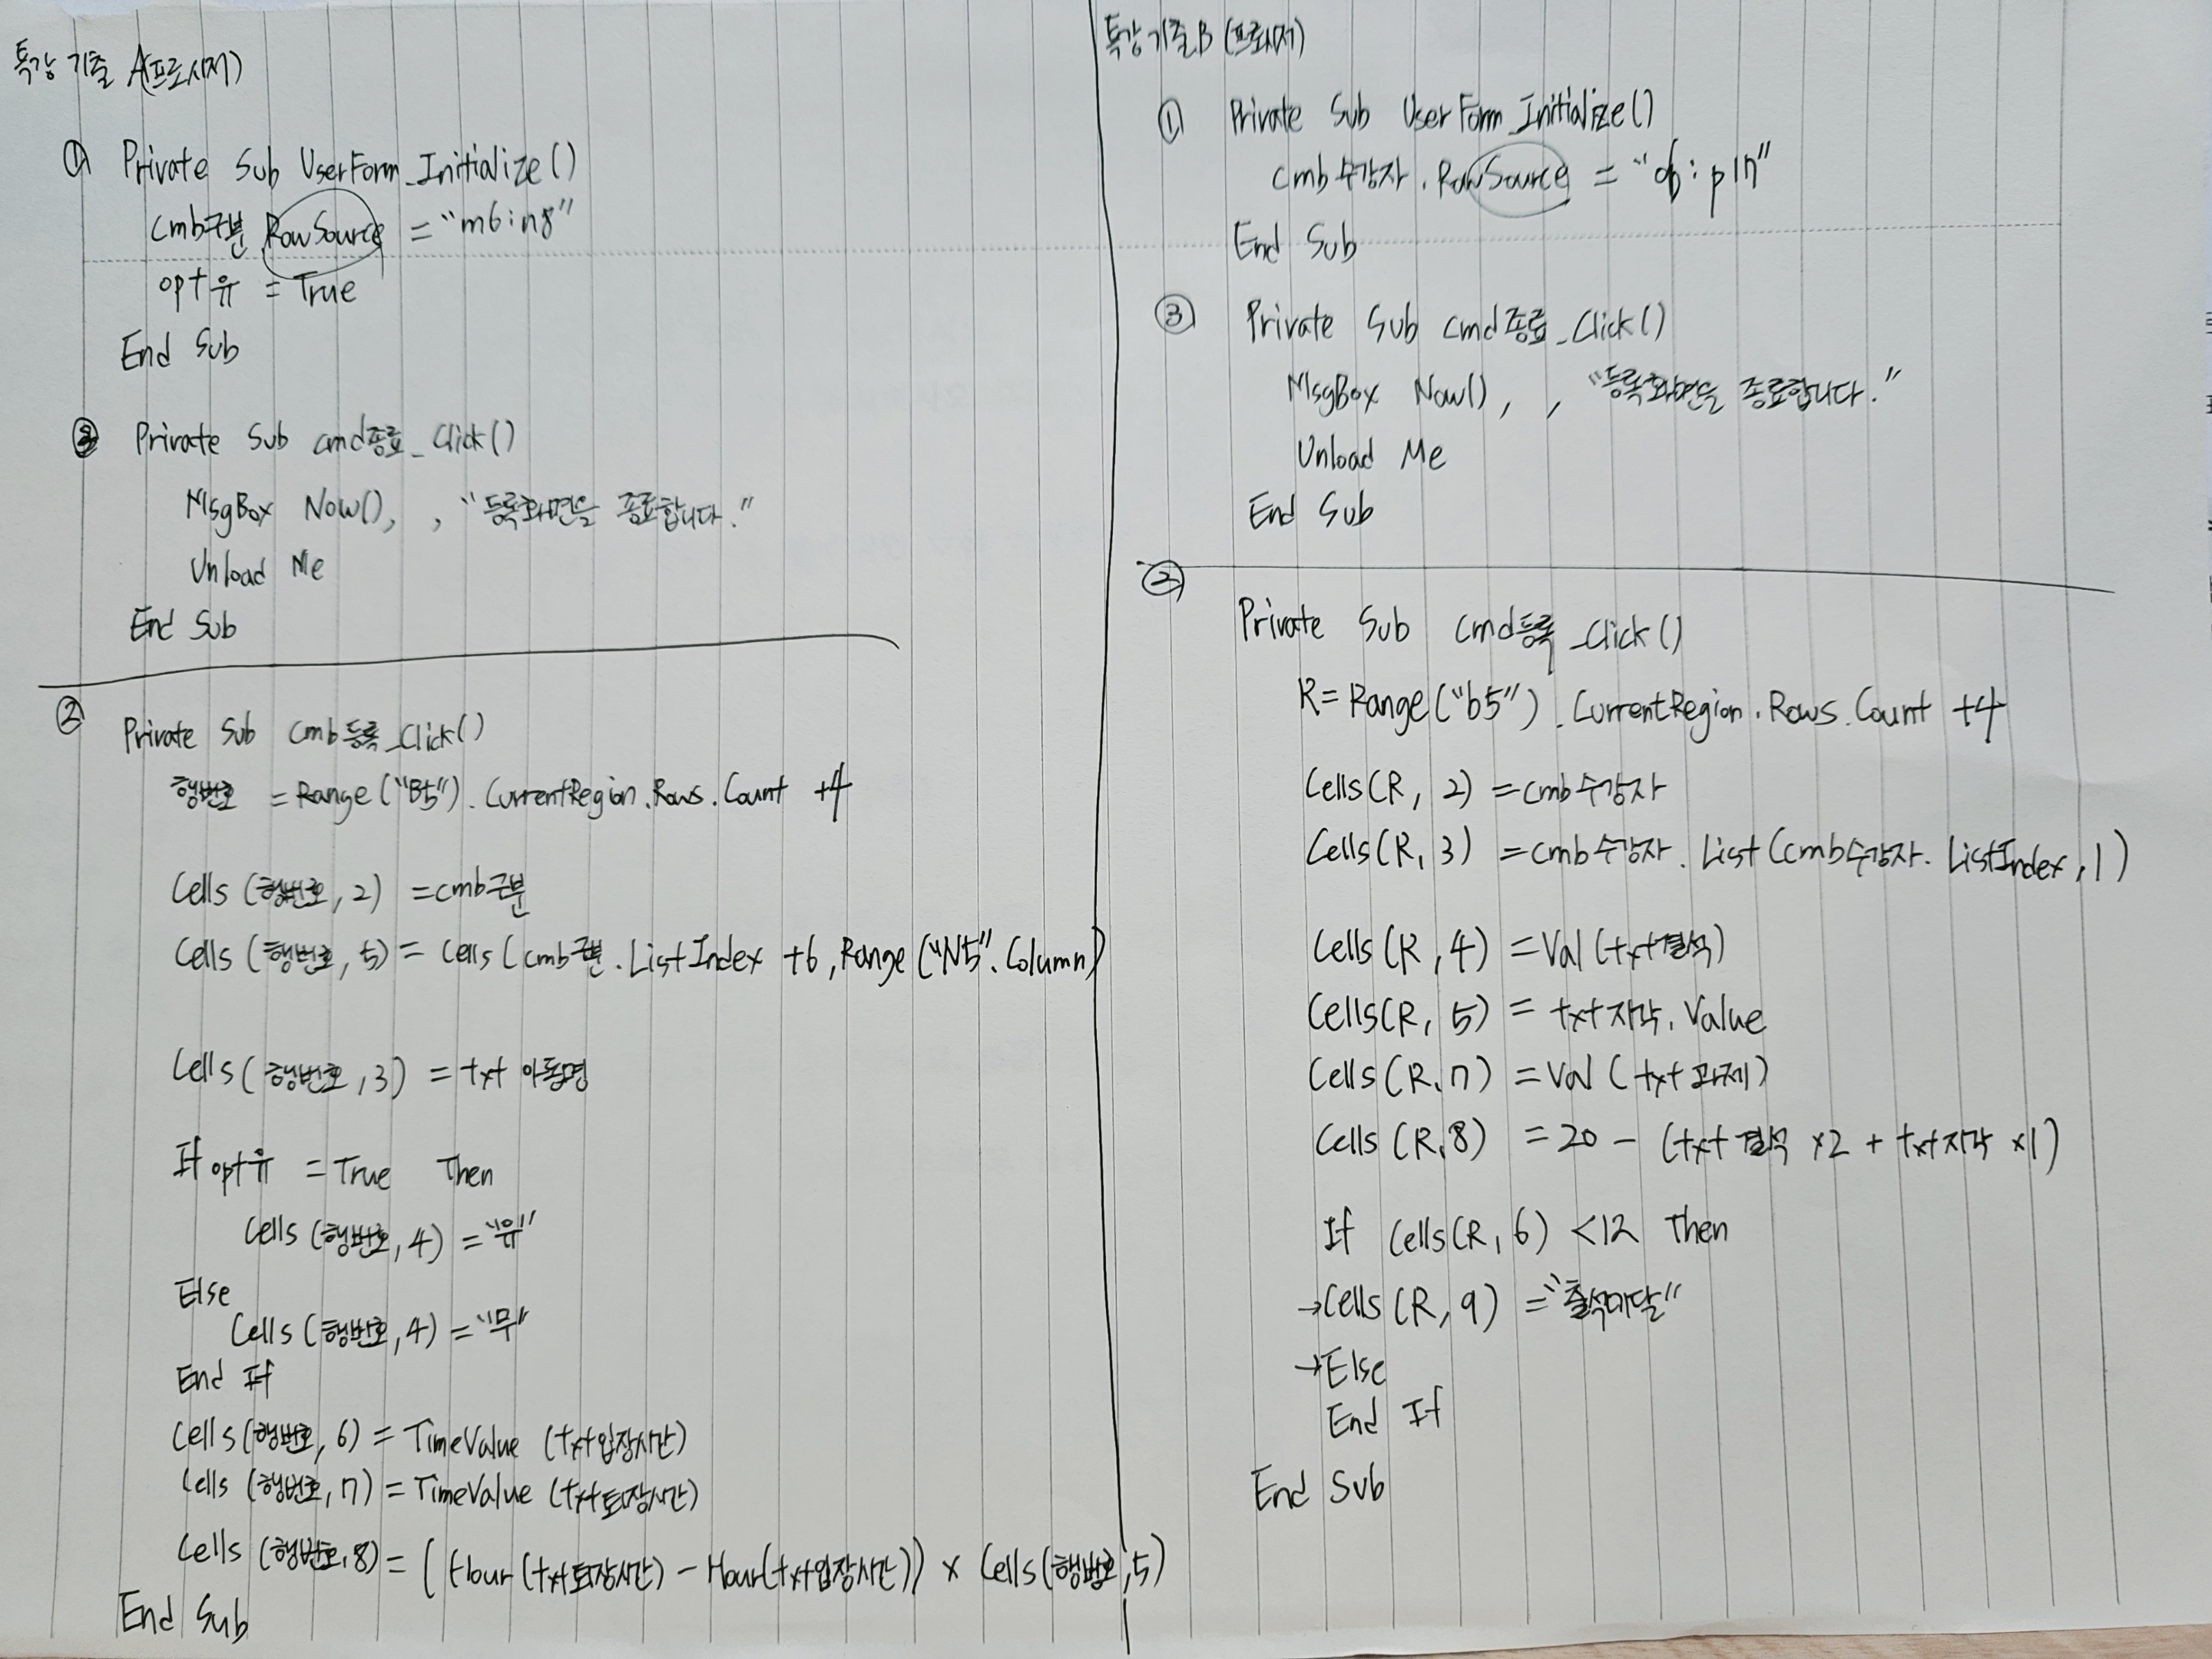 특강 기출 A(프로시저)
① Private Sub UserForm_Initialize()
cmb구분.RowSource = "m6:n8"
opt유 = True
End Sub
③ Private Sub cmd종료_Click()
MsgBox Now(), , "등록화면을 종료합니다."
Unload Me
End Sub
② Private Sub cmb등록_Click()
행번호 = Range("B5").CurrentRegion.Rows.Count +4
Cells(행번호, 2) = cmb구분
Cells(행번호, 5) = Cells(cmb구분.ListIndex +6, Range("N5".Column)
Cells(행번호, 3) = txt아동명
If opt유 = True Then
Cells(행번호, 4) = "유"
Else
Cells(행번호, 4) = "무"
End If
Cells(행번호, 6) = TimeValue (txt입장시간)
Cells(행번호, 7) = TimeValue (txt퇴장시간)
Cells(행번호, 8) = (Hour(txt퇴장시간) - Hour(txt입장시간)) × Cells(행번호, 5)
End Sub
특강기출B (프로시저)
① Private Sub UserForm_Initialize()
cmb수강자.RowSource =
End Sub
③ Private Sub cmd종료_Click()
MsgBox Now(), , "등록화면을 종료합니다."
Unload Me
End Sub
② Private Sub cmd등록_Click()
R = Range("b5").CurrentRegion.Rows.Count +4
Cells(R, 2) = cmb수강자
Cells(R, 3) = cmb수강자.List(cmb수강자.ListIndex, 1)
Cells(R, 4) = Val(txt결석)
Cells(R, 5) = txt지각.Value
Cells(R, 7) = Val(txt과제)
Cells(R, 8) = 20 - (txt결석 ×2 + txt지각 ×1)
If Cells(R, 6) <12 Then
→Cells(R, 9) = "출석미달"
→Else
End If
End Sub